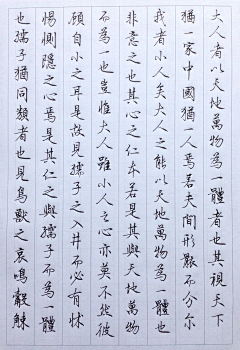 大人者以天地萬物為一體者也其視天下
猶一家中國猶一人焉若夫間形骸而分尔
我者小人矣大人之能以天地萬物為一體也
非意之也其心之仁本若是其與天地萬物
而為一也豈惟大人雖小人之心亦莫不然彼
顧自小之耳是故見孺子之入井而必有怵
惕惻隱之心焉是其仁之與孺子而為一體
也孺子猶同類者也見鳥獸之哀鳴觳觫